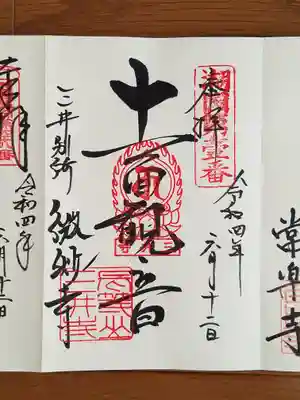 常楽寺
奉拝
令和四年
六月十二日
十一面観音
三井別所
微妙寺
奉拝
令和四年
六月十二日